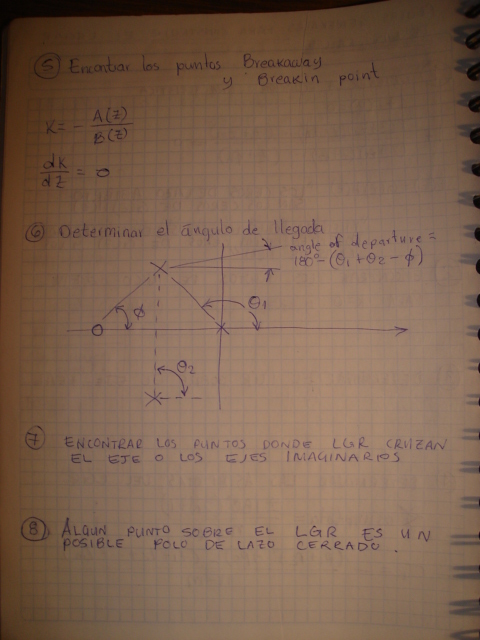 5 Encontrar los puntos Breakaway
y Breakin point
K = - A(z)/B(z)
dK/dz = 0
6 Determinar el ángulo de llegada
angle of departure =
180° - (θ1 + θ2 - ϕ)
ϕ
θ1
θ2
7 ENCONTRAR LOS PUNTOS DONDE LGR CRUZAN
EL EJE O LOS EJES IMAGINARIOS
8 ALGUN PUNTO SOBRE EL LGR ES UN
POSIBLE POLO DE LAZO CERRADO.